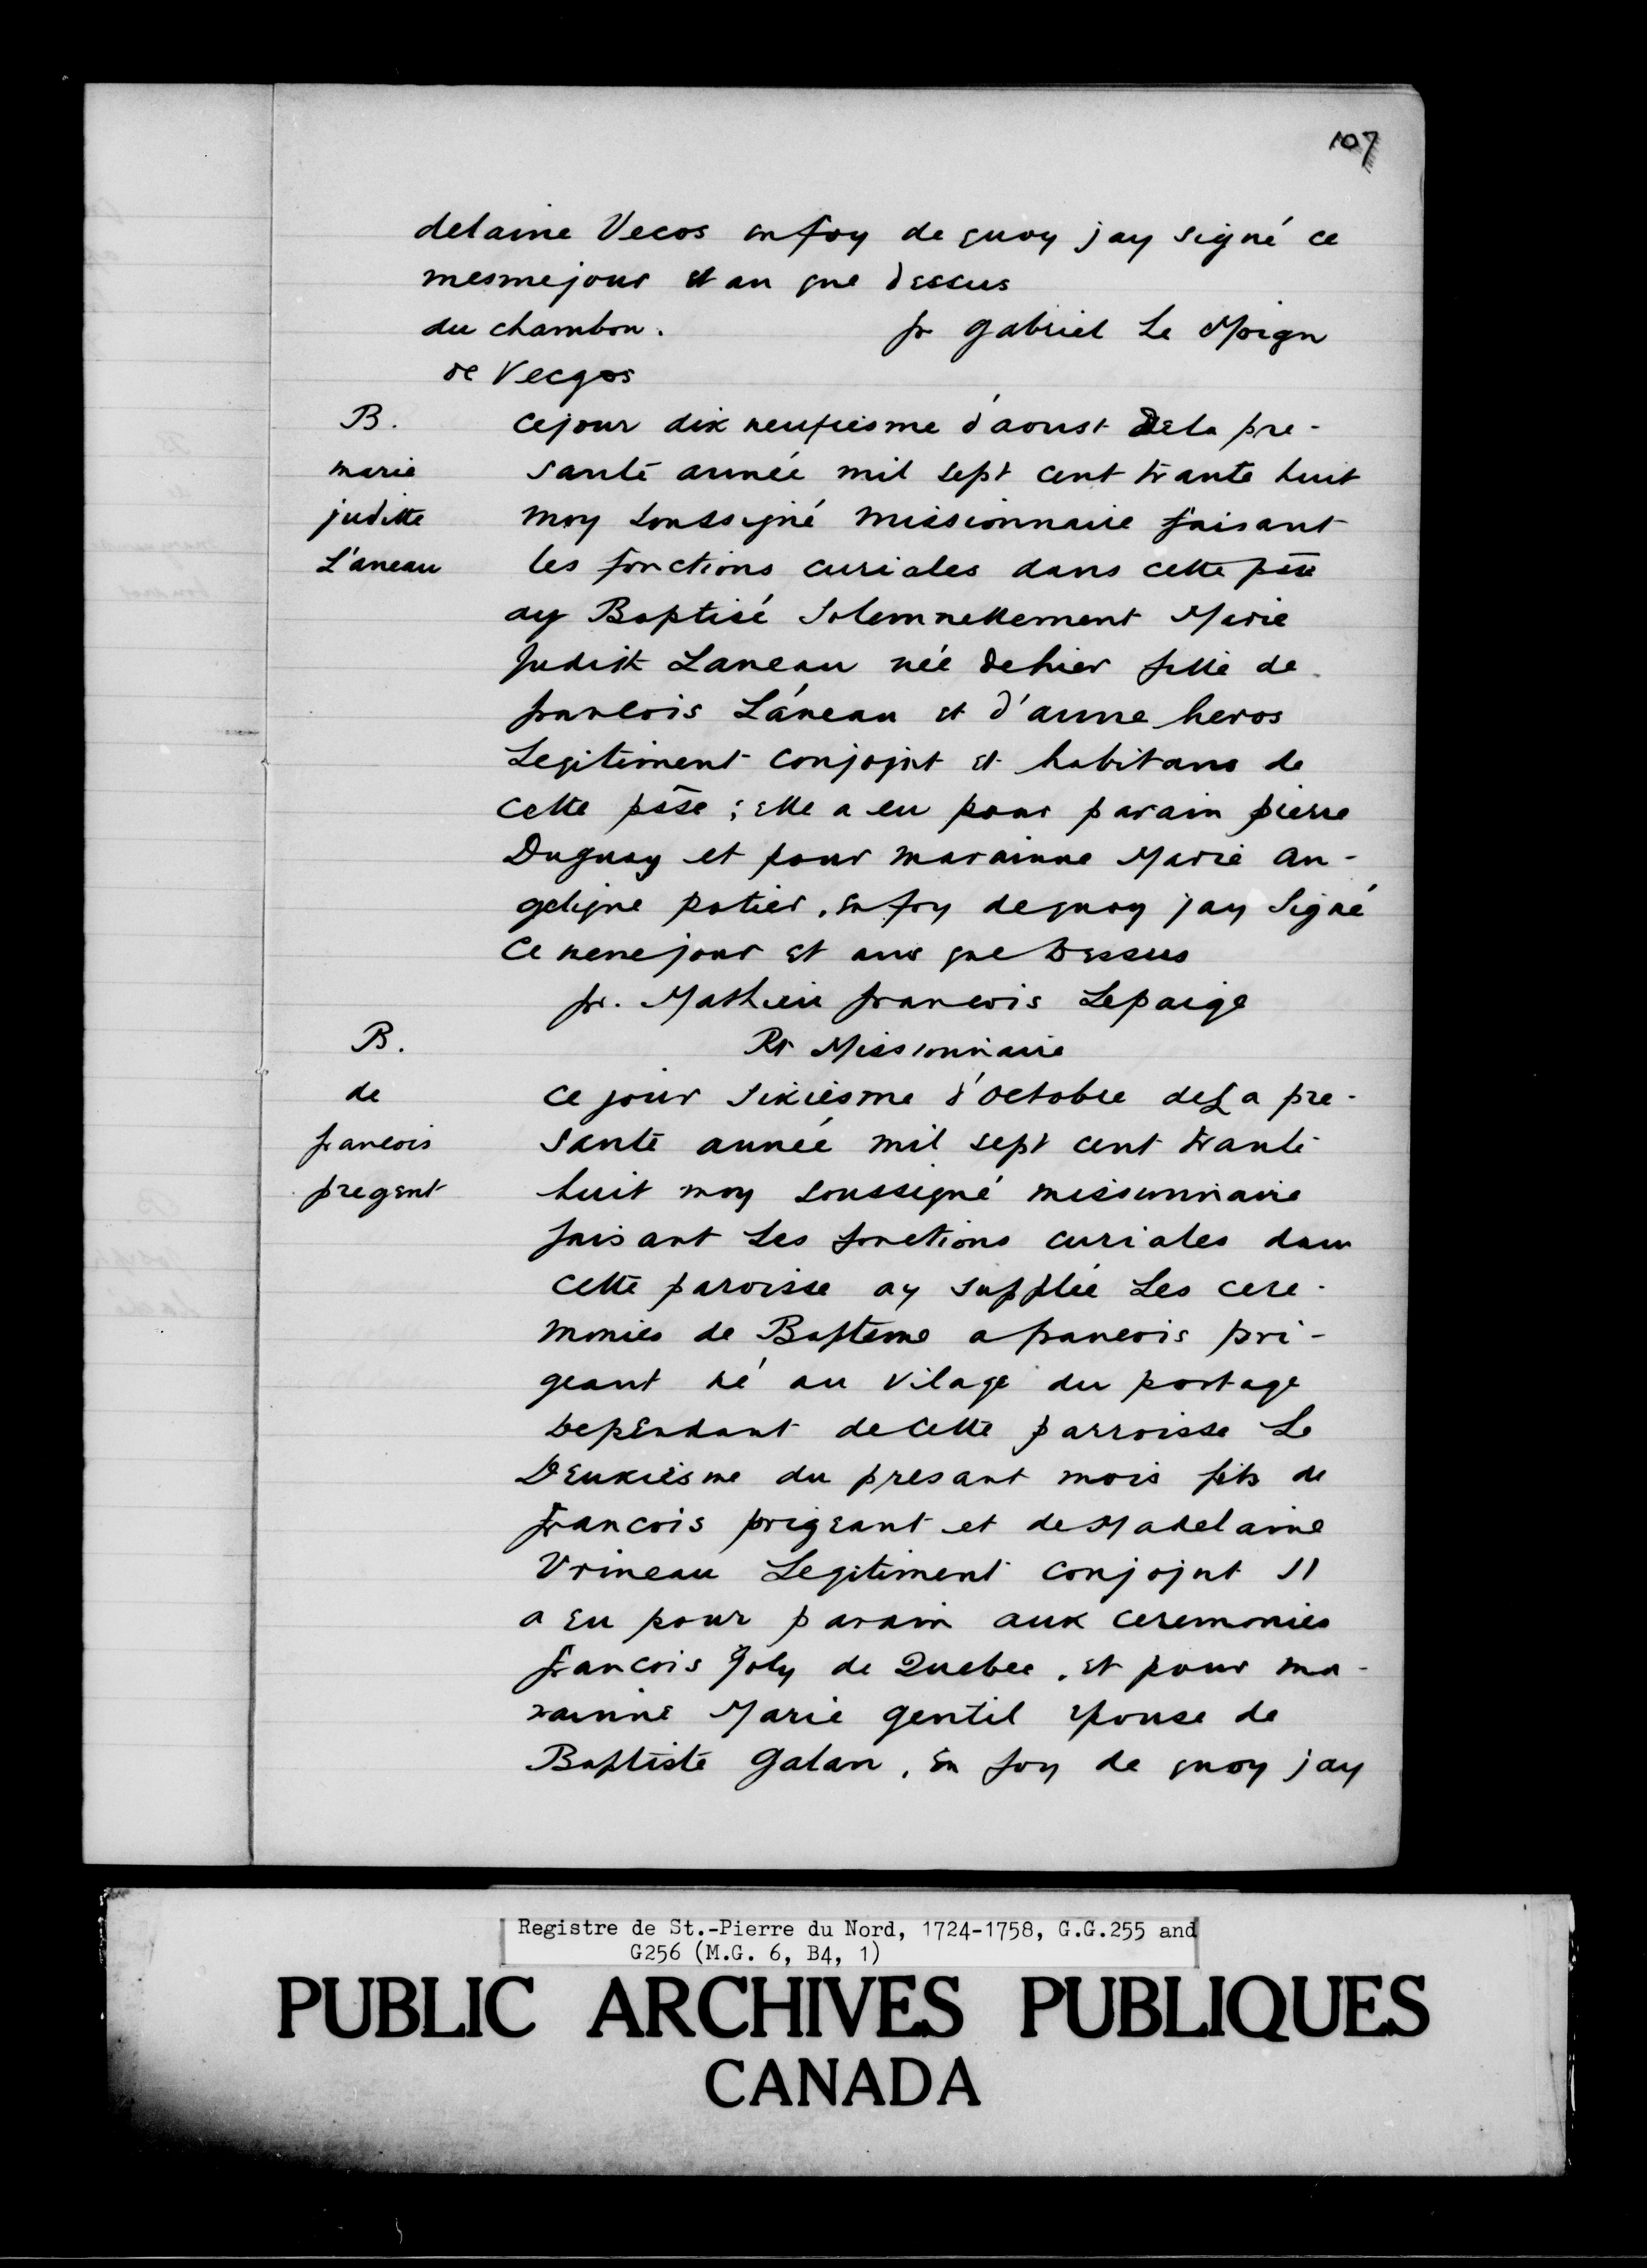 107
delaine Vecos en foy de quoy jay signé ce
mesme jour et an que dessus
du chambon. fr gabriel Le Moign
de Vecgos
B.
marie
juditte
L'aneau
ce jour dix neufiesme d'aoust de la pre-
sante année mil sept cent trante huit
moy soussigné missionnaire faisant
les fonctions curiales dans cette psse
ay Baptisé Solemnellement Marie
Judith Laneau née de hier fille de
francois L'aneau et d'anne heros
Legitiment conjojnt et habitans de
cette psse ; elle a eu pour parain pierre
Duguay et pour marainne Marie an-
gelique potier, en foy de quoy jay Signé
Ce meme jour et ans que Dessus
fr. Mathieu francois Lepaige
Rt Missionnaire
B.
de
francois
pregent
ce jour sixiesme d'Octobre de La pre-
sante année mil sept cent trante
huit moy soussigné missionnaire
faisant Les fonctions curiales dans
cette paroisse ay supplée Les cere-
monies de Bapteme a francois pri-
geant né au vilage du portage
Dependant de cette parroisse Le
Deuxiesme du presant mois fils de
francois prigeant et de Madelaine
Vrineau Legitiment conjojnt Il
a eu pour parain aux ceremonies
francois Joly de Quebec, et pour ma-
rainne Marie gentil epouse de
Baptiste galan, En foy de quoy jay
Registre de St.-Pierre du Nord, 1724-1758, G.G.255 and
G256 (M.G. 6, B4, 1)
PUBLIC ARCHIVES PUBLIQUES
CANADA